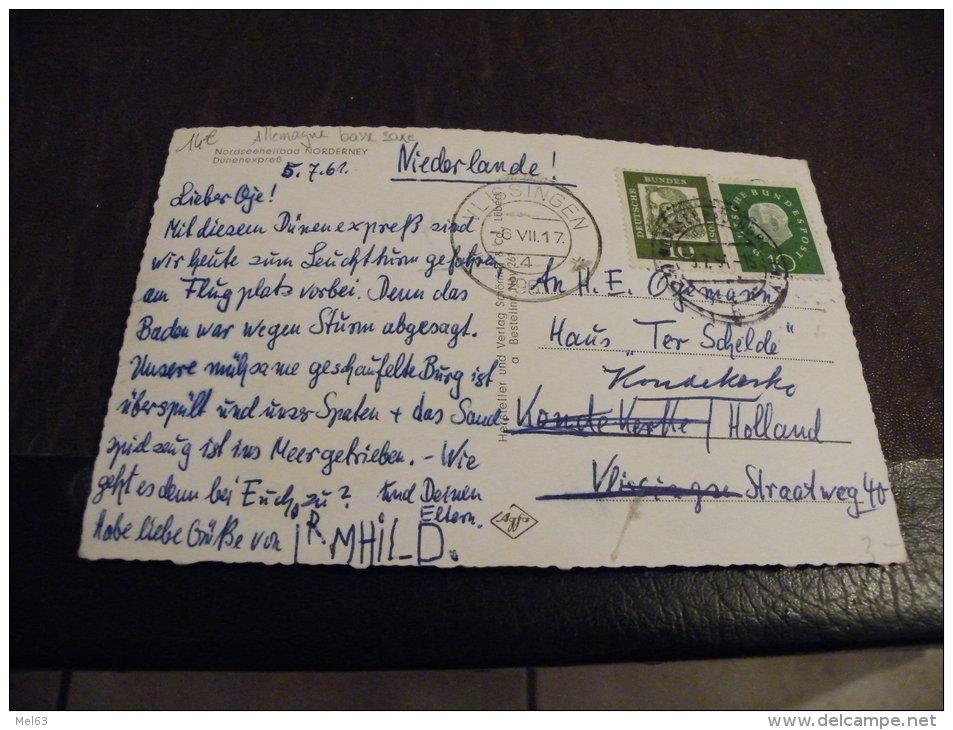 14€ Allemagne basse saxe
Nordseeheilbad NORDERNEY
Dünenexpreß
5.7.61.
Niederlande!
Lieber Oje!
Mit diesem Dünenexpreß sind
wir heute zum Leuchtturm gefahren
am Flugplats vorbei. Denn das
Baden war wegen Sturm abgesagt.
Unsere mühsame geschaufelte Burg ist
überspült und unser Spaten + das Sand
spielzeug ist ins Meer getrieben. - Wie
geht es denn bei Euch zu? und Deinen
Eltern.
habe liebe Grüße von IRMHILD.
Hersteller und Verlag Schöning & Co., Lübeck
Bestellnr. Nov 261
Agfa
VLISSINGEN
6 VII.17
4
DEUTSCHE BUNDESPOST
10
DEUTSCHE BUNDESPOST
10
An H. E. Ogemann
Haus "Ter Schelde"
Kondekerke
Konde Kerke / Holland
Vlissingse Straatweg 40
3-
Mel63